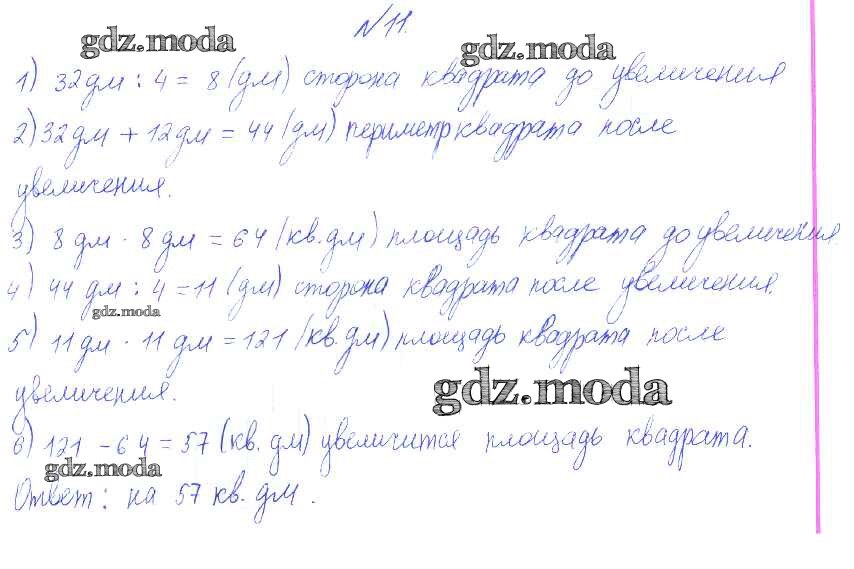 № 11.
gdz.moda gdz.moda
1) 32 дм : 4 = 8 (дм) сторона квадрата до увеличения
2) 32 дм + 12 дм = 44 (дм) периметр квадрата после
увеличения.
3) 8 дм · 8 дм = 64 (кв. дм) площадь квадрата до увеличения
4) 44 дм : 4 = 11 (дм) сторона квадрата после увеличения.
gdz.moda
5) 11 дм · 11 дм = 121 (кв. дм) площадь квадрата после
увеличения.
gdz.moda
6) 121 - 64 = 57 (кв. дм) увеличится площадь квадрата.
gdz.moda
Ответ: на 57 кв. дм.